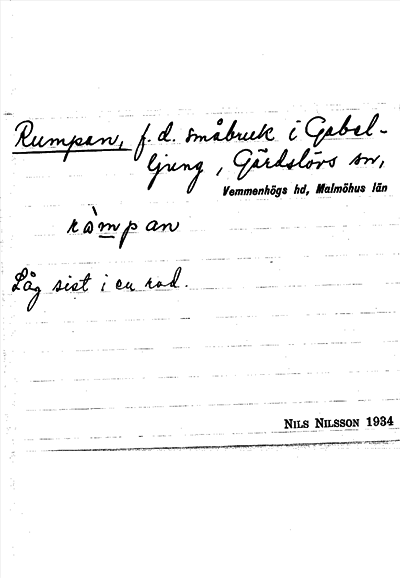 Rumpan, f.d. småbruk i Gabel-
ljung, Gärdslövs sn,
Vemmenhögs hd, Malmöhus län
ràmpan
Låg sist i en rad.
NILS NILSSON 1934